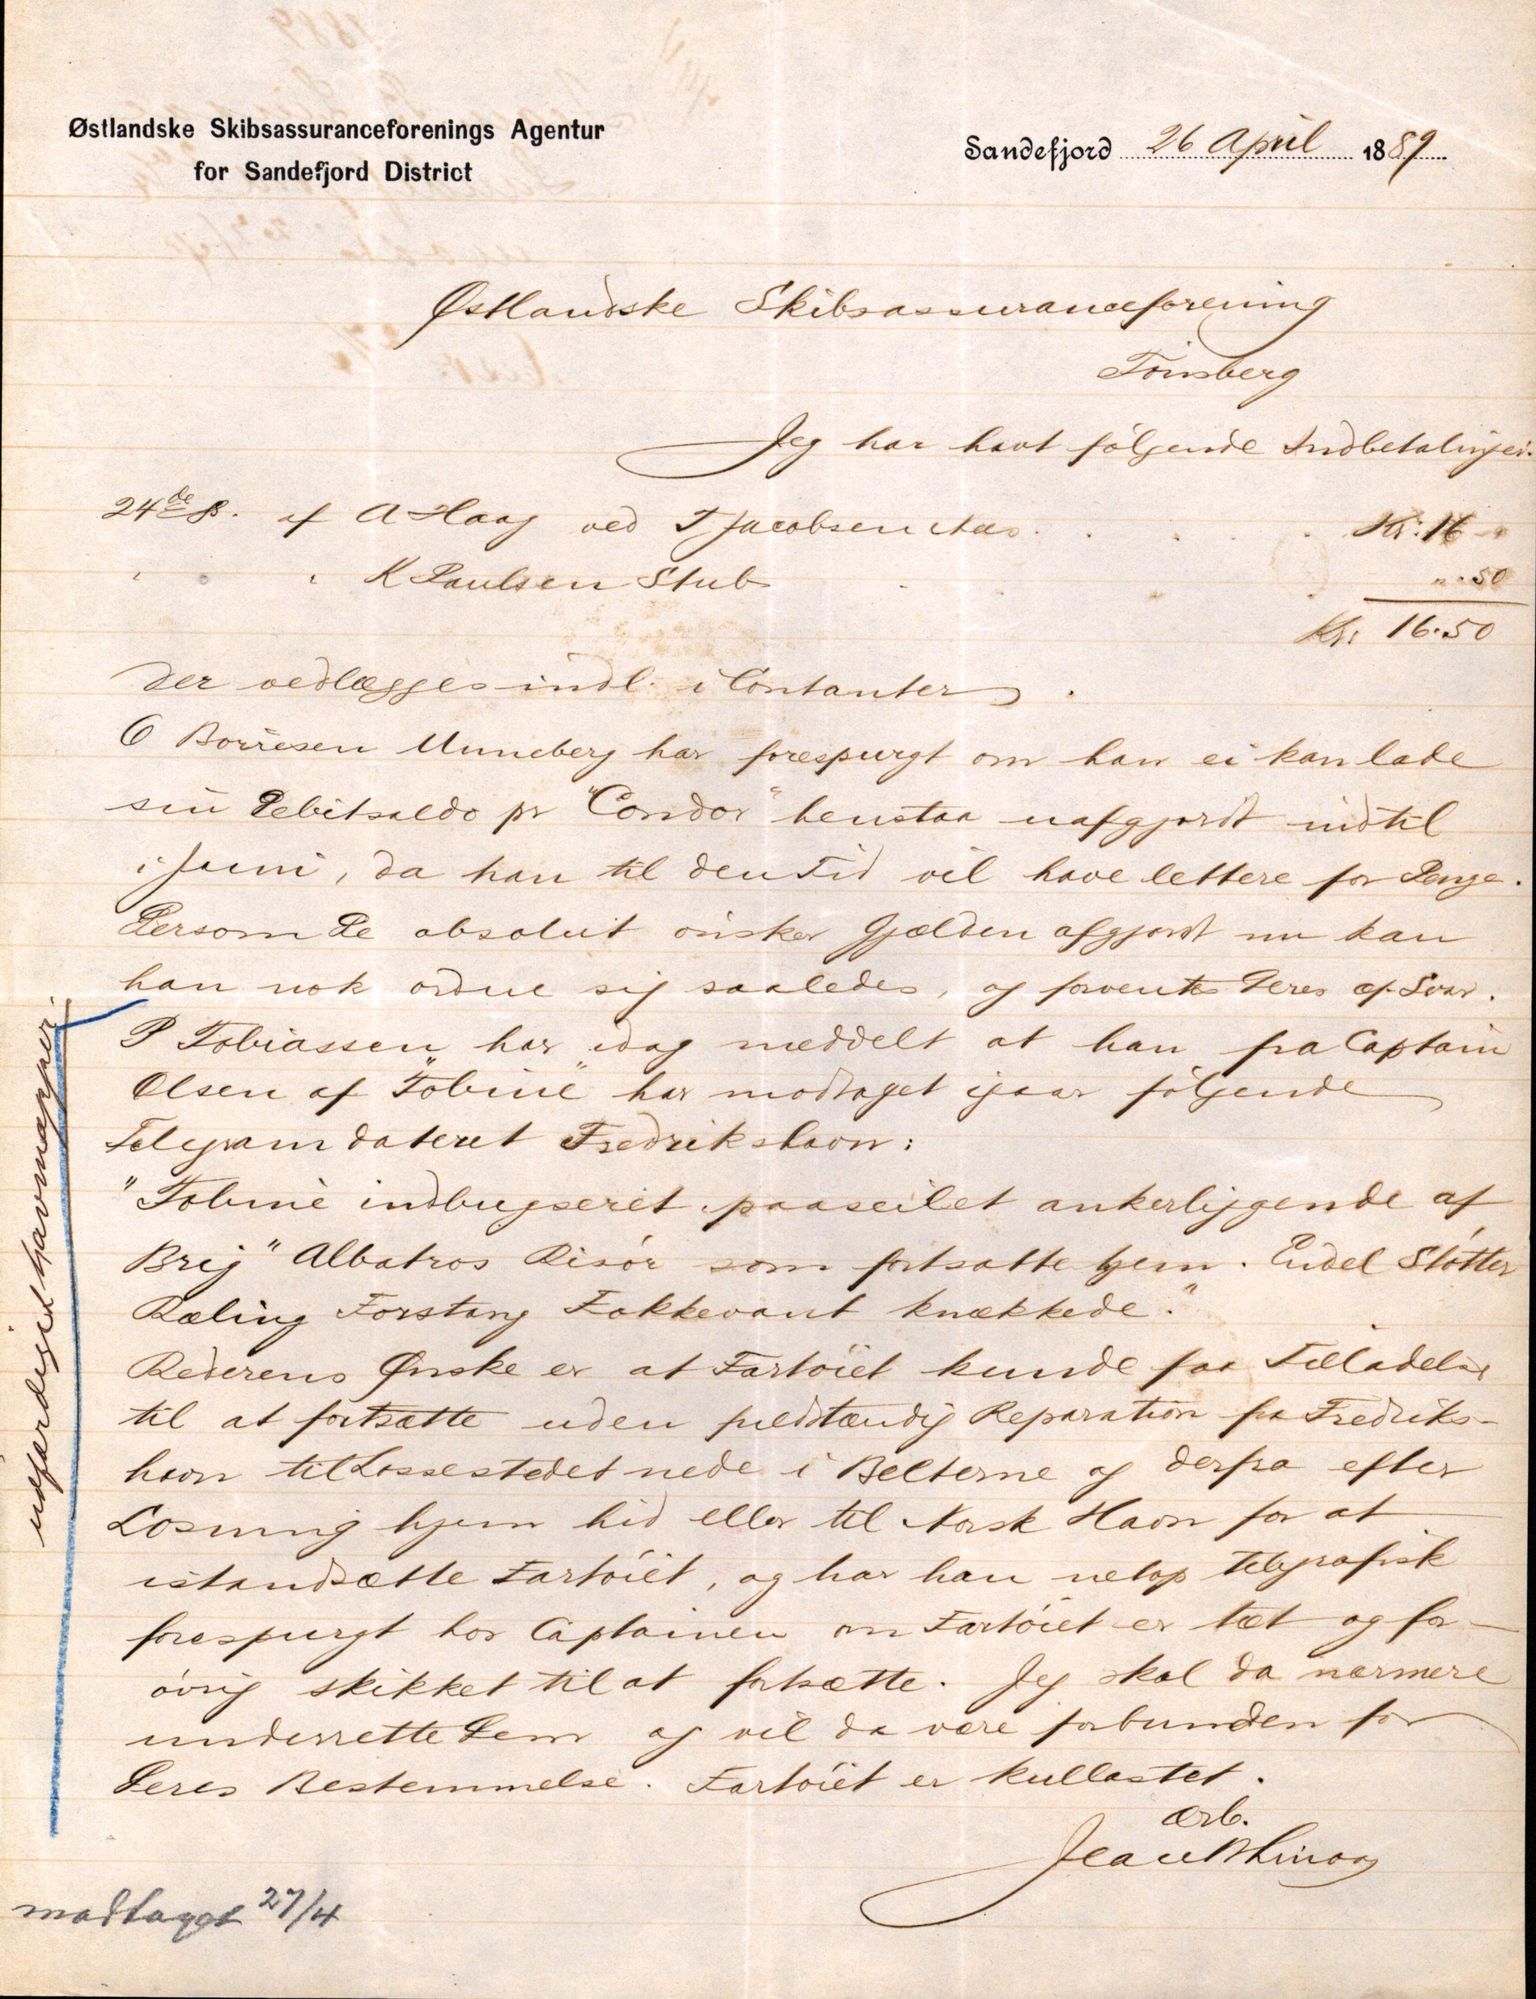 Østlandske Skibsassuranceforenings Agentur
for Sandefjord District
Sandefjord 26 April 1889
Østlandske Skibsassuranceforening
Tönsberg
Jeg har havt fölgende Indbetalinger.
24de ds. af A Haag ved T Jacobsen Næs . . . . . Kr: 16 -
" " " K Paulsen Stub . . " . 50
Kr: 16.50
der vedlægges indl. i Contanter .
O Borresen Unneberg har forespurgt om han ei kan lade
sin Debitsaldo pr "Condor" henstaa uafgjordt indtil
i Juni, da han til den Tid vil have lettere for Penge.
Dersom De absolut önsker Gjælden afgjordt nu kan
han nok ordne sig saaledes, og forventes Deres æ. Svar.
P Tobiassen har idag meddelt at han fra Captain
Olsen af "Tobine" har modtaget igaar fölgende
Telegram dateret Fredrikshavn:
"Tobine indbugseret paaseilet ankerliggende af
Brig "Albatros Risör som fortsatte hjem. Endel Stötter
Ræling Forstang Fokkevant knækkede."
Rederens Ønske er at Fartöiet kunde faa Tilladelse
til at fortsætte uden fuldstændig Reparation fra Fredriks-
havn til Lossestedet nede i Belterne og derfra efter
Losning hjem hid eller til Norsk Havn for at
istandsætte Fartöiet, og har han netop telegrafisk
forespurgt hos Captainen om Fartöiet er tæt og for-
övrig skikket til at fortsætte. Jeg skal da nærmere
underrette Dem og vil da være forbunden for
Deres Bestemmelse. Fartöiet er kullastet.
ærb.
Jean B Linaae
udfærdiget havnepapirer
modtaget 27/4